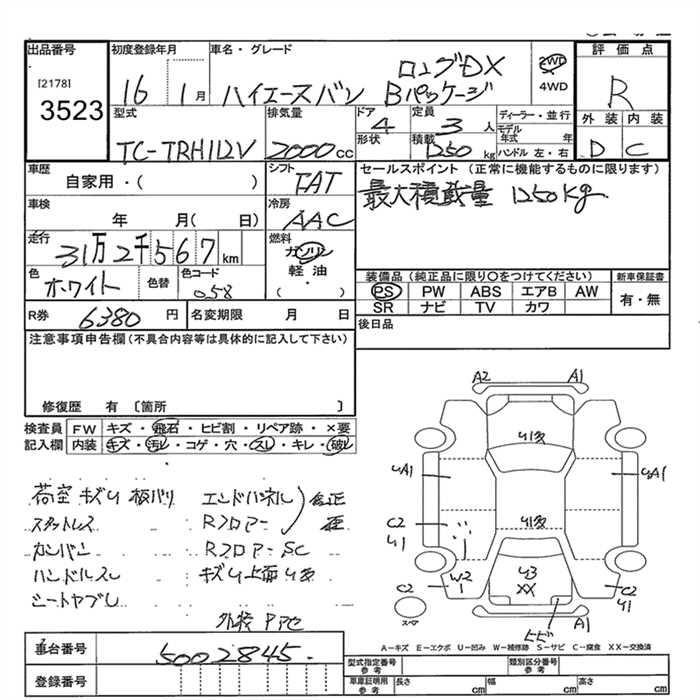 出品番号
[2178]
3523
初度登録年月
16 1月
車名・グレード
ロングDX
ハイエースバン Bパッケージ
2WD
4WD
評価点
R
外装 内装
D C
型式
TC-TRH112V
排気量
2000cc
ドア 4
形状
定員 3人
積載 1250kg
ディーラー・並行
モデル年式 年
ハンドル 左・右
車歴
自家用・( )
シフト
FAT
車検
年 月( 日)
冷房
AAC
走行
31万2千567km
燃料
ガソリン
軽油
( ・ )
色
ホワイト
色替
色コード
058
R券 6380円
名変期限 月 日
セールスポイント(正常に機能するものに限ります)
最大積載量 1250kg
装備品(純正品に限り〇をつけてください)
新車保証書
PS PW ABS エアB AW
有・無
SR ナビ TV カワ
後日品
注意事項申告欄(不具合内容等は具体的に記入して下さい)
修復歴 有 〔箇所 〕
検査員 FW キズ・飛石・ヒビ割・リペア跡・×要
記入欄 内装 キズ・汚レ・コゲ・穴・スレ・キレ・破レ
荷室 キズU 板バリ エンドパネル
スタットレス Rフロアー
カンバン Rフロアー SC
ハンドルスレ キズU上面U多
シートヤブレ
A2 A1
U1多
UA1 UA1
C2
U1
U1多
C2 W2
1
U3
XX
C2
U1
スペア
A1
A-キズ E-エクボ U-凹み W-補修跡 S-サビ C-腐食 XX-交換済
車台番号 5002845
登録番号
型式指定番号
参考
類別区分番号
参考
車庫証明用
参考
長さ cm 幅 cm 高さ cm